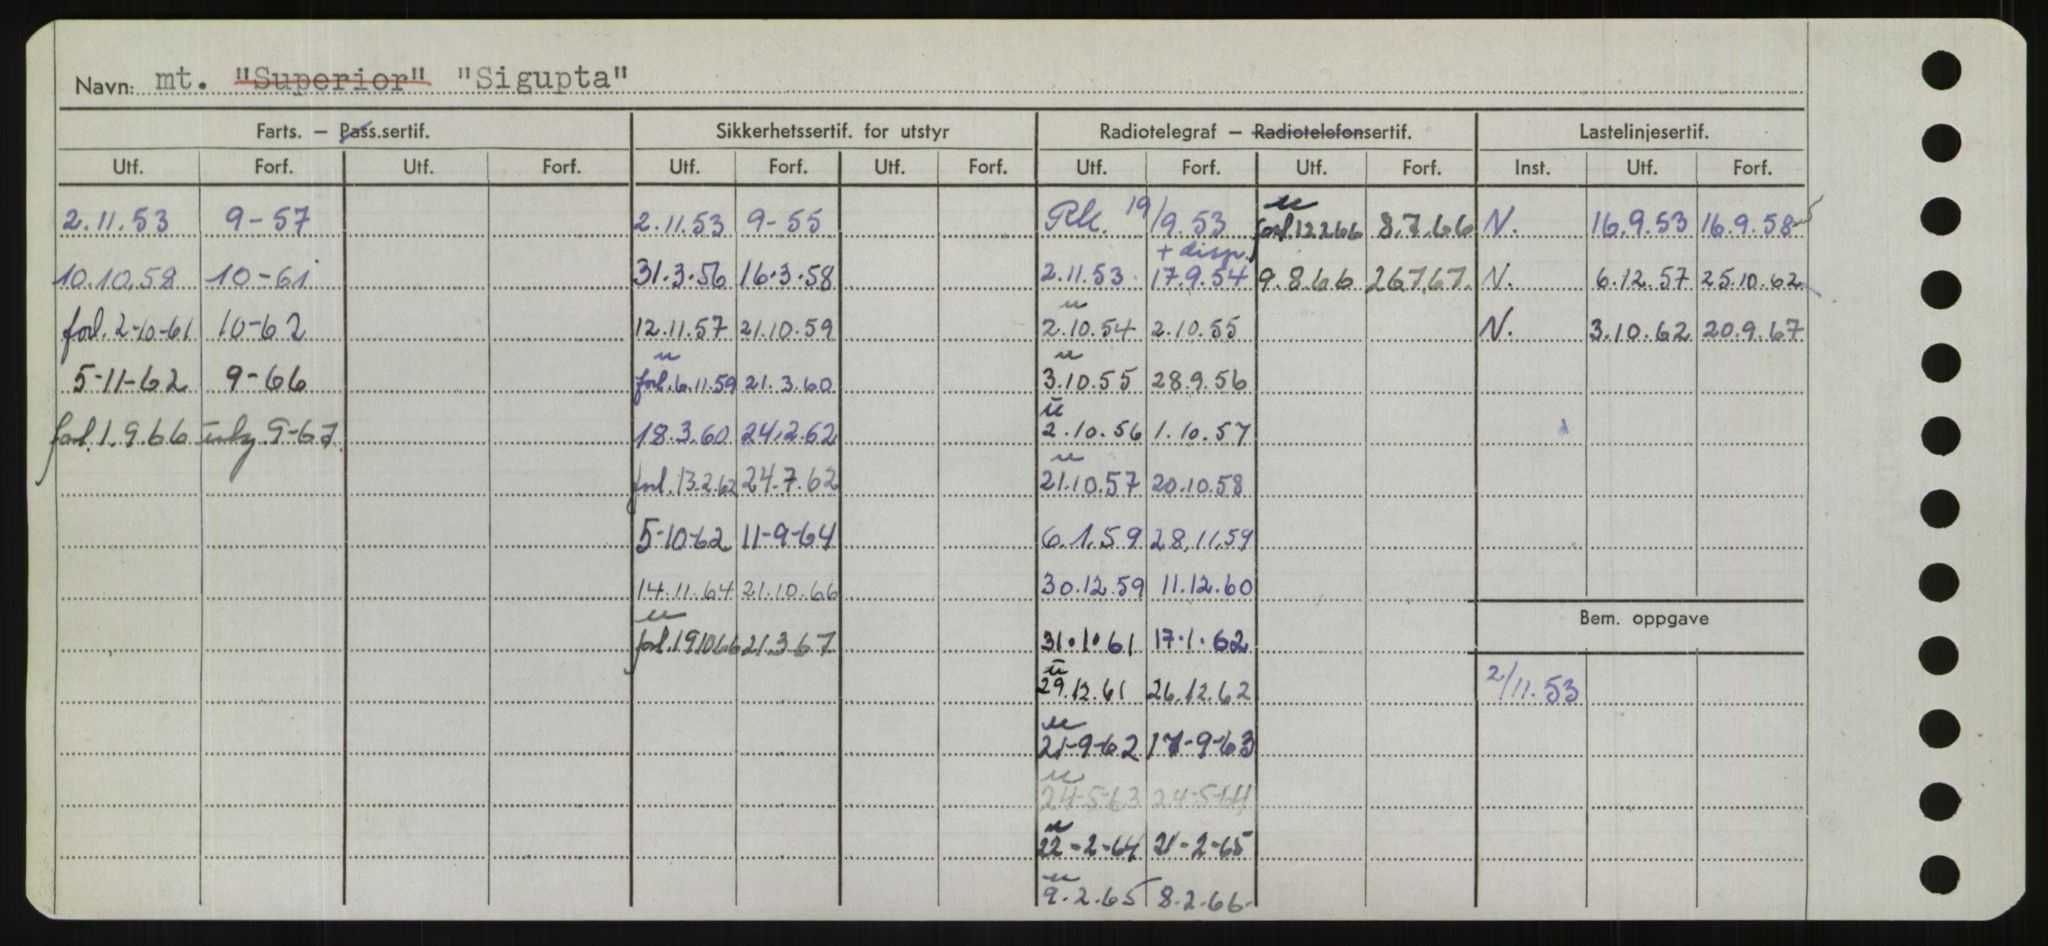 Navn: mt. "Superior" "Sigupta"
Farts. – Pass.sertif. Sikkerhetssertif. for utstyr Radiotelegraf – Radiotelefonsertif. Lastelinjesertif.
Utf. Forf. Utf. Forf. Utf. Forf. Utf. Forf. Utf. Forf. Utf. Forf. Inst. Utf. Forf.
2.11.53 9-57 2.11.53 9-55 Rk. 19/9.53 u forl.12266 8.7.66 N. 16.9.53 16.9.58
+ disp.
10.10.58 10-61 31.3.56 16.3.58 2.11.53 17.9.54 9.8.66 26767. N. 6.12.57 25.10.62
u
forl. 2-10-61 10-62 12.11.57 21.10.59 2.10.54 2.10.55 N. 3.10.62 20.9.67
u u
5-11-62 9-66 forl. 6.11.59 21.3.60 3.10.55 28.9.56
u
forl. 1.9.66 9-67. 18.3.60 24.2.62 2.10.56 1.10.57
u
forl. 13.2.62 24.7.62 21.10.57 20.10.58
5-10-62 11-9-64 6.1.59 28.11.59
14.11.64 21.10.66 30.12.59 11.12.60
Bem. oppgave
u
forl. 191066 21.367 31.1.61 17.1.62
u
29.12.61 26.12.62 2/11.53
u
21-9-62 17-9-63
u
24-5-63 24-5-64
u
22-2-64 21-2-65
u
9.2.65 8.2.66